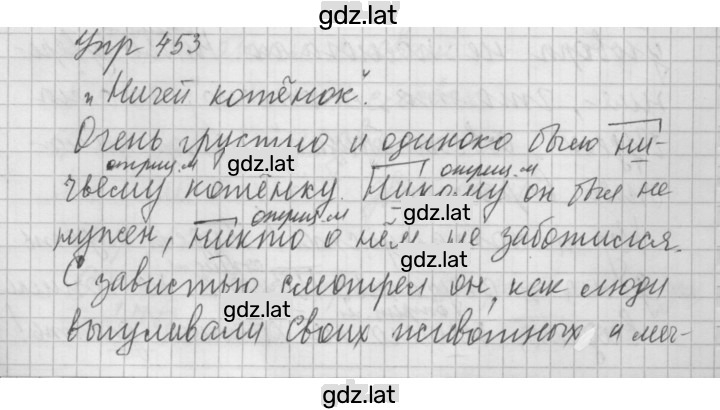 gdz.lat
Упр 453
„Ничей котёнок".
Очень грустно и одиноко было ни-
gdz.lat
отриц. м отриц. м
чьему котёнку. Никому он был не
gdz.lat
отриц. м
нужен, никто о нём не заботился.
gdz.lat
С завистью смотрел он, как люди
gdz.lat
выгуливали своих животных, а меч-
gdz.lat
gdz.lat